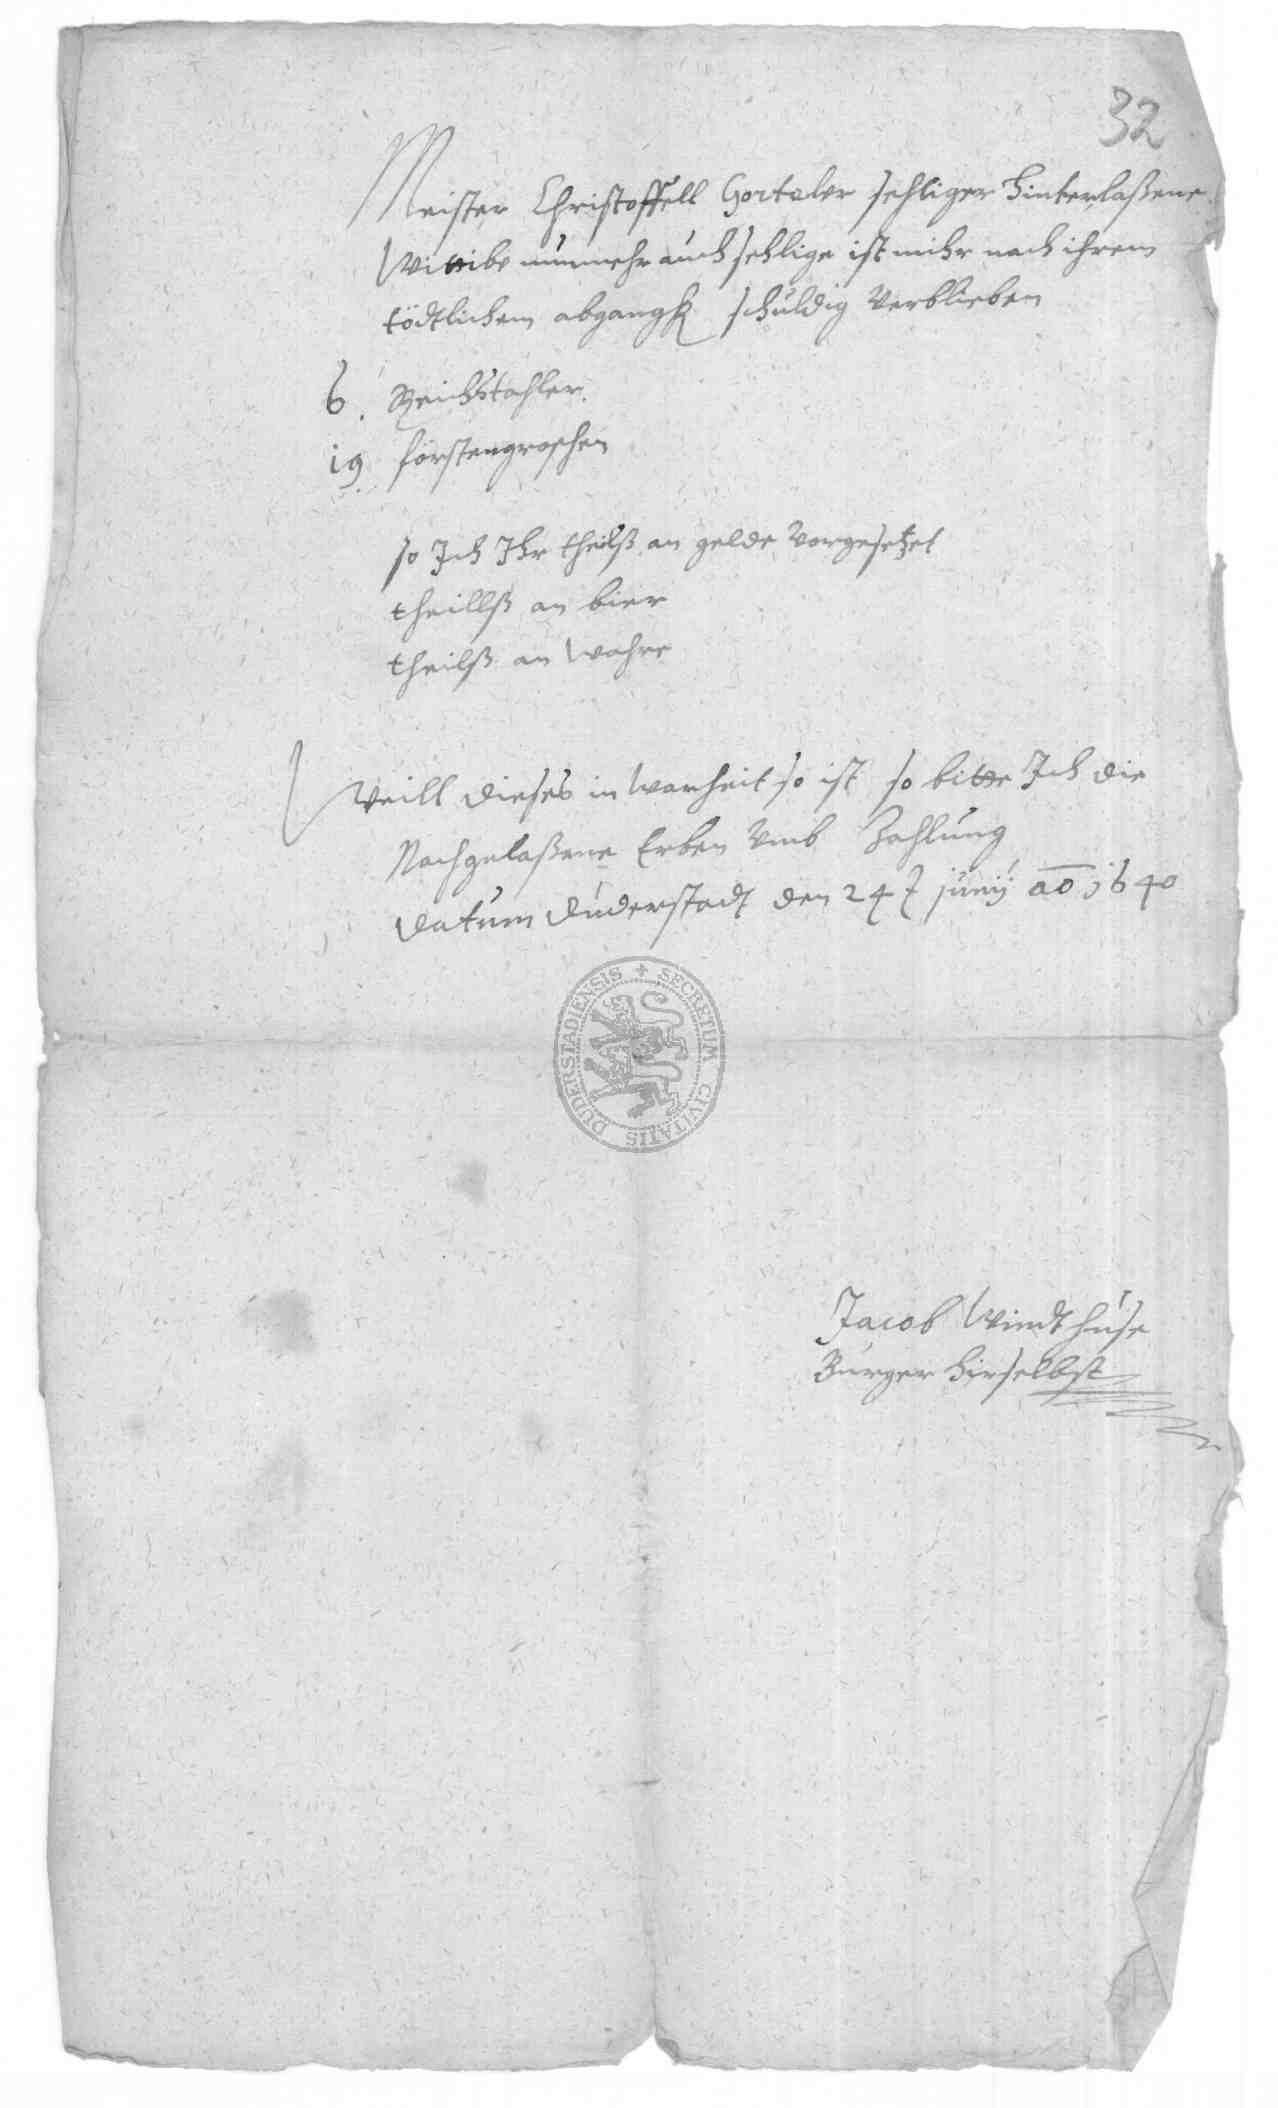 32
Meister Christoffell Gortaler sehliger hinterlaßene
Wittibe nunmehr auch sehlige ist mihr nach ihrem
tödtlichem abgangk schuldig verblieben
6. Reichstahler.
19 förstengroschen
so Ich Ihr theilß an gelde vorgesetzet
theillß an bier
theilß an wahre
Weill dieses in warheit so ist so bitte Ich die
Nachgelaßene Erben umb Zahlung
Datum Duderstadt den 24 junij ao 1640
SECRETUM CIVITATIS DUDERSTADIENSIS
Jacob Windthuse
Burger hirselbst